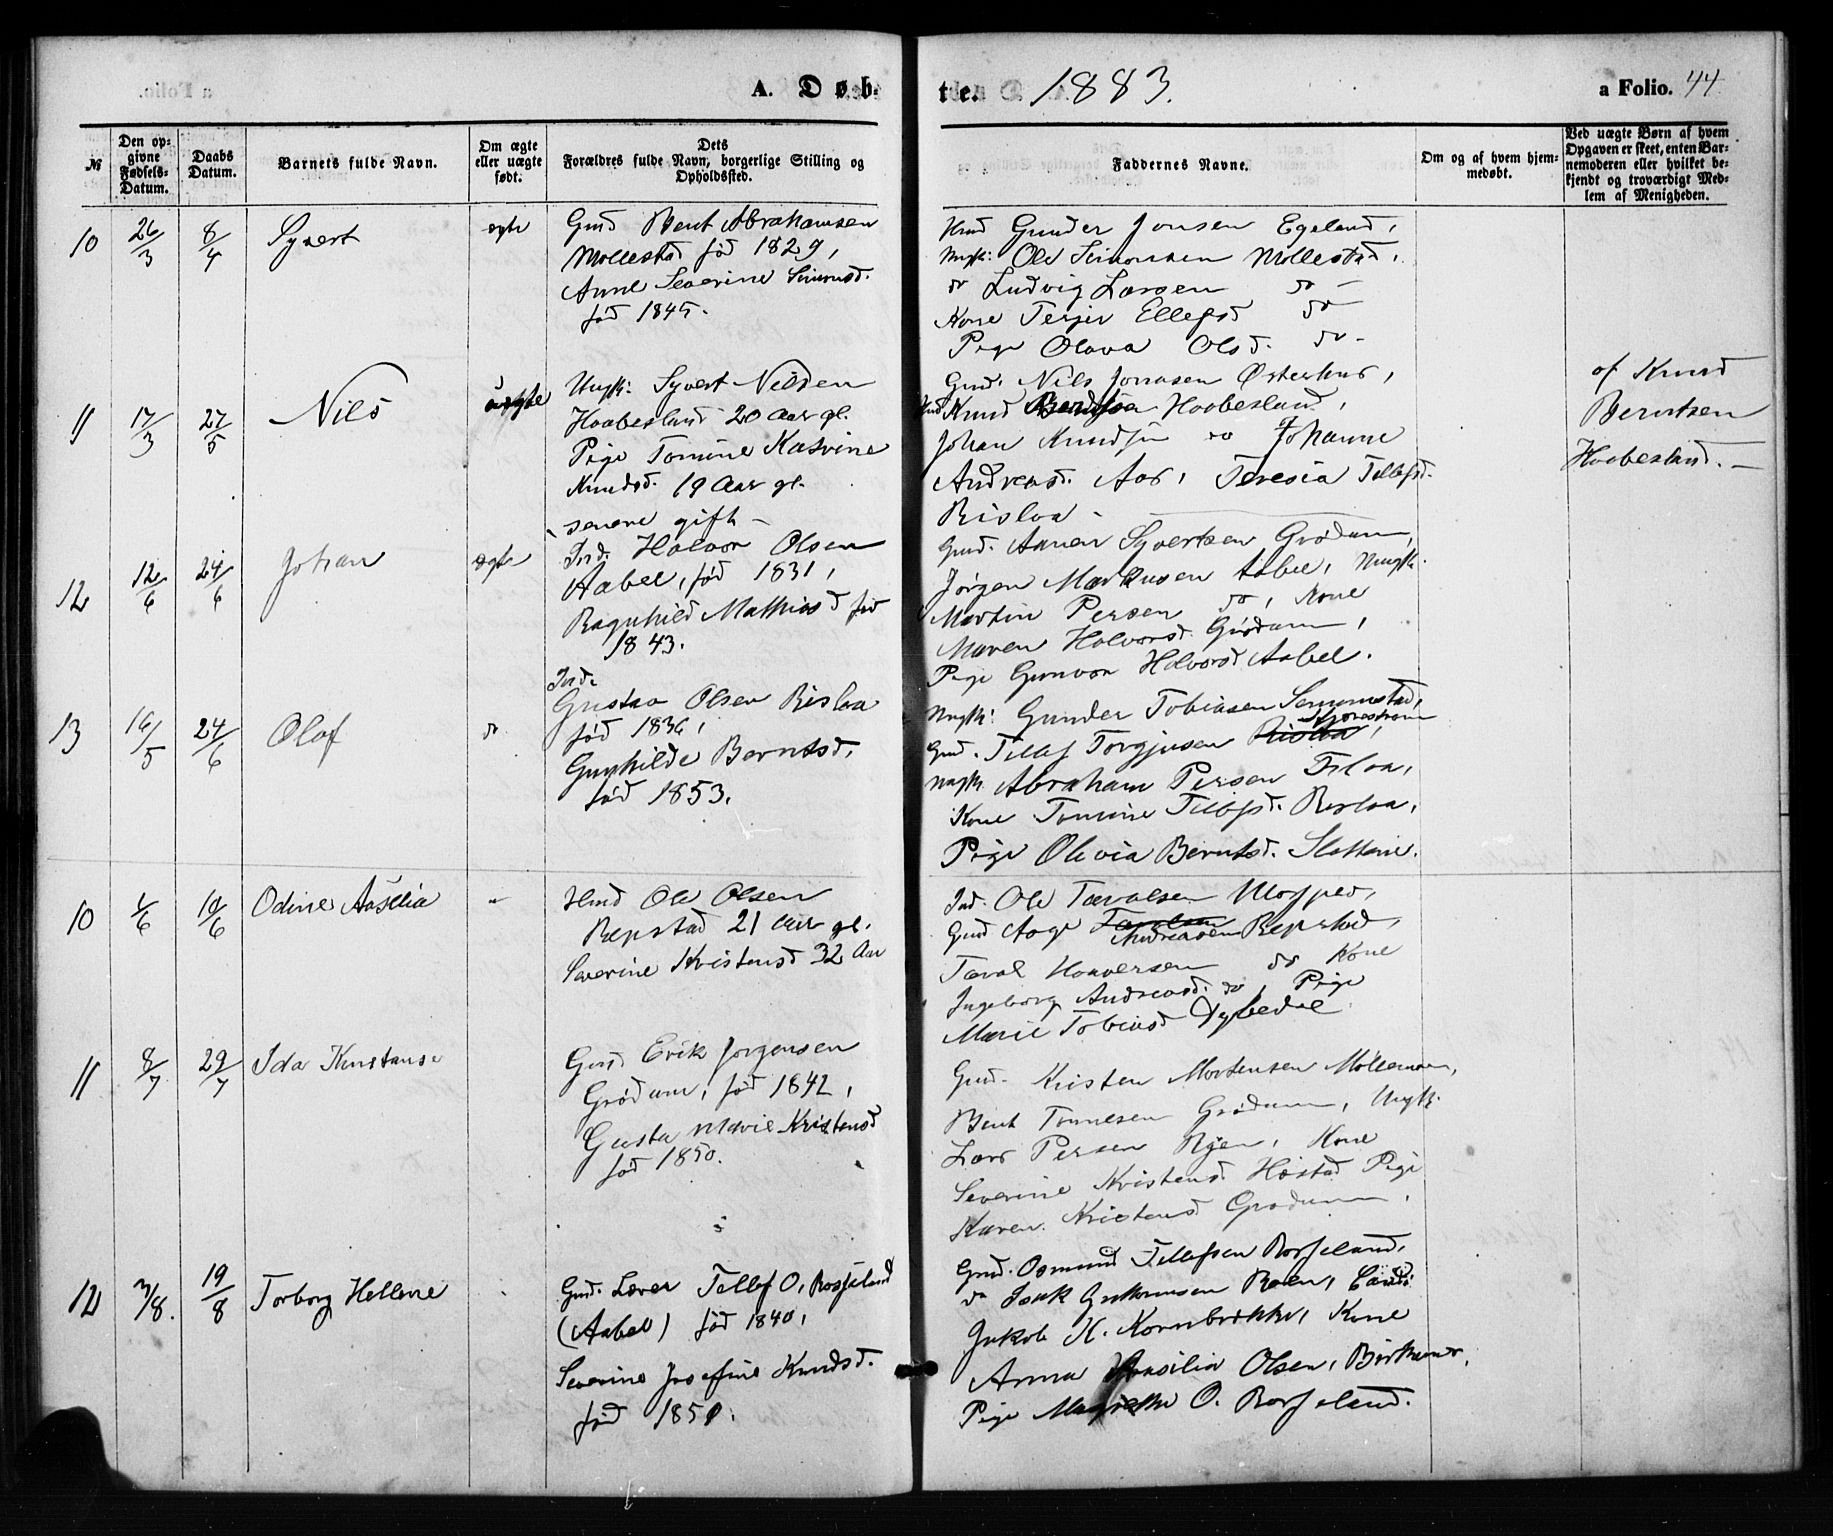 A. Døb-
te. 1883. a Folio. 44
№
Den op-
givne
Fødsels-
Datum.
Daabs
Datum.
Barnets fulde Navn.
Om ægte
eller uægte
født.
Dets
Forældres fulde Navn, borgerlige Stilling og
Opholdssted.
Faddernes Navne.
Om og af hvem hjem-
medøbt.
Ved uægte Børn af hvem
Opgaven er skeet, enten Bar-
nemoderen eller hvilket be-
kjendt og troværdigt Med-
lem af Menigheden.
10 26/3 8/4 Syvert ægte
Gmd Bent Abrahamsen
Mollestad fød 1829,
Anne Severine Simonsd.
fød 1845.
Hmd Gunder Jonsen Egeland,
Ungk: Ole Simonsen Mollestad,
do Ludvig Larsen do -
Kone Terjer Ellefsd do
Pige Olava Olsd. do -
11 17/3 27/5 Nils uægte
Ungk: Syvert Nilsen
Haabesland 20 Aar gl.
Pige Tomine Kasrine
Knudsd. 19 Aar gl.
senere gift -
Gmd. Nils Jonasen Østerhus,
Knud Berntsen Haabesland,
Johan Knudsen do Johanne
Andreasd. Aas, Teresia Tellefsd.
Risløa -
af Knud
Berntsen
Haabesland. -
12 12/6 24/6 Johan ægte
Ind. Halvor Olsen
Aabel, fød 1831,
Ragnhild Mathiasd fød
1843.
Gmd. Aanen Syvertsen Grødum,
Jørgen Markusen Aabel, Ungk.
Martin Persen do, Kone
Maren Halvorsd. Grødum,
Pige Gunvor Halvorsd Aabel.
13 16/5 24/6 Olaf do
Ind.
Gustav Olsen Risløa
fød 1836,
Gunhilde Berntsd.
fød 1853.
Ungk: Gunder Tobiasen Senumstad,
Gmd. Tellef Torgjusen Risløa,
Ungk. Abraham Persen
Kone Tomine Tellefsd. Risløa,
Pige Olevia Berntsd. Slottene.
10 1/6 10/6 Odine Aaselia "
Hmd Ole Olsen
Repstad 21 Aar gl.
Severine Kristensd 32 Aar
Ind. Ole Tarvalsen
Gmd Aage Andreasen Repstad,
Tarval Haaversen do Kone
Ingeborg Andreasd. do, Pige
Marie Tobiasd Dybedal
11 8/7 29/7 Ida Kunstanse
Gmd Erik Jørgensen
Grødum, fød 1842,
Gusta Marie Kristensd
fød 1850.
Gmd. Kristen Mortensen
Bent Tønnesen Grødum, Ungk.
Lars Persen Rjen, Kone
Severine Kristensd. Høstad Pige
Karen Kristensd Grødum,
12 /8. 19/8 Torborg Hellene
Gmd. Lærer Tellef O. Rosseland
(Aabel) fød 1840,
Severine Josefine Knudsd.
fød 1851.
Gmd. Osmund Tellefsen Rosseland,
do Isak Guttormsen Røen, Cand:
Jakob K. Kornbrekke, Kone
Anna Aasilia Olsen, Birkenes,
Pige Magrethe O. Rosseland.